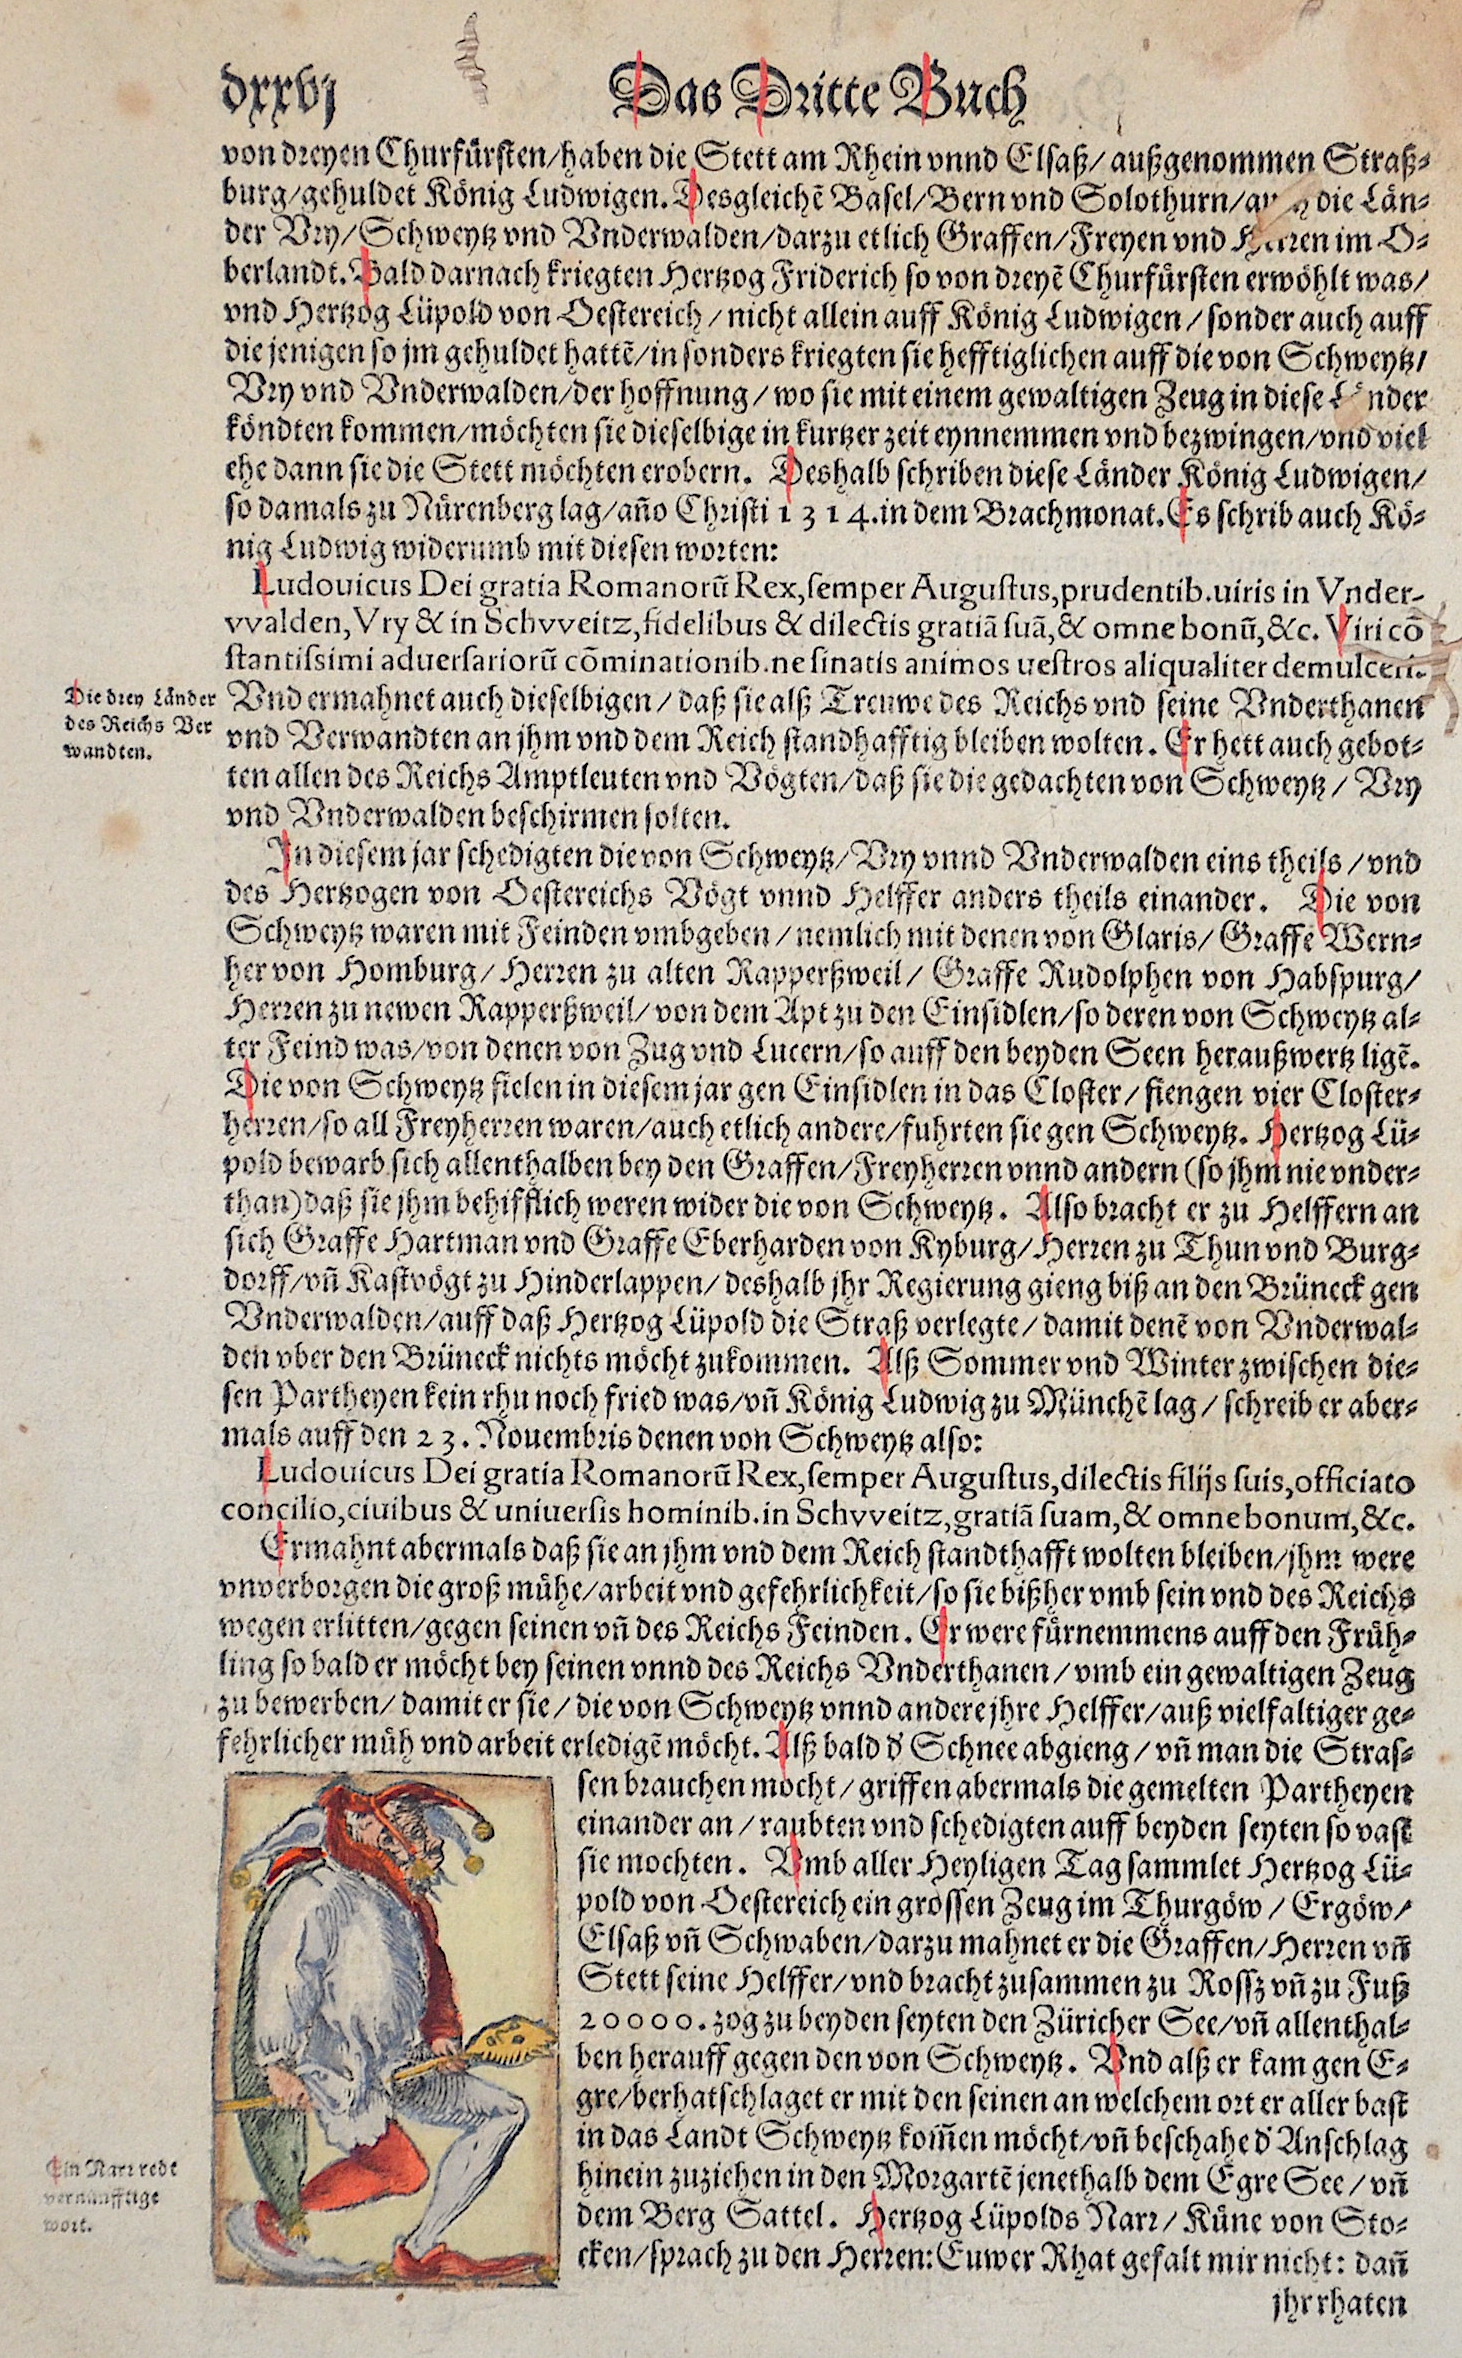 dxxvj
Das Dritte Buch
von dreyen Churfürsten/haben die Stett am Rhein vnnd Elsaß/ außgenommen Straß-
burg/gehuldet König Ludwigen. Desgleichē Basel/Bern vnd Solothurn/ die Län-
der Vry/Schweytz vnd Vnderwalden/darzu etlich Graffen/Freyen vnd Herren im O-
berlandt. Bald darnach kriegten Hertzog Friderich so von dreyē Churfürsten erwöhlt was/
vnd Hertzog Lüpold von Oestereich / nicht allein auff König Ludwigen / sonder auch auff
die jenigen so jm gehuldet hattē/in sonders kriegten sie hefftiglichen auff die von Schweytz/
Vry vnd Vnderwalden/der hoffnung / wo sie mit einem gewaltigen Zeug in diese Länder
köndten kommen/möchten sie dieselbige in kurtzer zeit eynnemmen vnd bezwingen/vnd viel
ehe dann sie die Stett möchten erobern. Deshalb schriben diese Länder König Ludwigen/
so damals zu Nürenberg lag/año Christi 1314. in dem Brachmonat. Es schrib auch Kö-
nig Ludwig widerumb mit diesen worten:
Ludouicus Dei gratia Romanorū Rex, semper Augustus, prudentib. uiris in Vnder-
vvalden, Vry & in Schvveitz, fidelibus & dilectis gratiā suā, & omne bonū, &c. Viri cō
stantissimi adversariorū cōminationib. ne sinatis animos uestros aliqualiter demulceri.
Die drey Länder
des Reichs Ver
wandten.
Vnd ermahnet auch dieselbigen / daß sie alß Treuwe des Reichs vnd seine Vnderthanen
vnd Verwandten an jhm vnd dem Reich standhafftig bleiben wolten. Er hett auch gebot-
ten allen des Reichs Amptleuten vnd Vögten/daß sie die gedachten von Schweytz / Vry
vnd Vnderwalden beschirmen solten.
In diesem jar schedigten die von Schweytz/Vry vnnd Vnderwalden eins theils / vnd
des Hertzogen von Oestereichs Vögt vnnd Helffer anders theils einander. Die von
Schweytz waren mit Feinden vmbgeben / nemlich mit denen von Glaris/ Graffe Wern-
her von Homburg/ Herren zu alten Rapperßweil/ Graffe Rudolphen von Habspurg/
Herren zu newen Rapperßweil/ von dem Apt zu den Einsidlen/so deren von Schweytz al-
ter Feind was/von denen von Zug vnd Lucern/so auff den beyden Seen heraußwertz ligē.
Die von Schweytz fielen in diesem jar gen Einsidlen in das Closter / fiengen vier Closter-
herren/so all Freyherren waren/auch etlich andere/fuhrten sie gen Schweytz. Hertzog Lü-
pold bewarb sich allenthalben bey den Graffen/Freyherren vnnd andern (so jhm nie vnder-
than) daß sie jhm behifflich weren wider die von Schweytz. Also bracht er zu Helffern an
sich Graffe Hartman vnd Graffe Eberharden von Kyburg/Herren zu Thun vnd Burg-
dorff/vñ Kastvögt zu Hinderlappen/ deshalb jhr Regierung gieng biß an den Brüneck gen
Vnderwalden/auff daß Hertzog Lüpold die Straß verlegte / damit denē von Vnderwal-
den vber den Brüneck nichts möcht zukommen. Alß Sommer vnd Winter zwischen die-
sen Partheyen kein rhu noch fried was/vñ König Ludwig zu Münchē lag / schreib er aber-
mals auff den 23. Nouembris denen von Schweytz also:
Ludouicus Dei gratia Romanorū Rex, semper Augustus, dilectis filijs suis, officiato
concilio, ciuibus & uniuersis hominib. in Schvveitz, gratiā suam, & omne bonum, &c.
Ermahnt abermals daß sie an jhm vnd dem Reich standthafft wolten bleiben/jhm were
vnverborgen die groß mühe/arbeit vnd gefehrlichkeit/so sie bißher vmb sein vnd des Reichs
wegen erlitten/gegen seinen vñ des Reichs Feinden. Er were fürnemmens auff den Früh-
ling so bald er möcht bey seinen vnnd des Reichs Vnderthanen / vmb ein gewaltigen Zeug
zu bewerben/ damit er sie / die von Schweytz vnnd andere jhre Helffer/auß vielfaltiger ge-
fehrlicher müh vnd arbeit erledigē möcht. Alß bald d' Schnee abgieng / vñ man die Stras-
sen brauchen mocht / griffen abermals die gemelten Partheyen
einander an / raubten vnd schedigten auff beyden seyten so vast
sie mochten. Vmb aller Heyligen Tag sammlet Hertzog Lü-
pold von Oestereich ein grossen Zeug im Thurgöw / Ergöw/
Elsaß vñ Schwaben/darzu mahnet er die Graffen/Herren vñ
Stett seine Helffer/vnd bracht zusammen zu Rossz vñ zu Fuß
20000. zog zu beyden seyten den Züricher See/vñ allenthal-
ben herauff gegen den von Schweytz. Vnd alß er kam gen E-
gre/berhatschlaget er mit den seinen an welchem ort er aller bast
in das Landt Schweytz kom̄en möcht/vñ beschahe d' Anschlag
hinein zuziehen in den Morgartē jenethalb dem Egre See / vñ
dem Berg Sattel. Hertzog Lüpolds Narr / Küne von Sto-
cken/sprach zu den Herren: Euwer Rhat gefalt mir nicht: dañ
Ein Narr redt
vernünfftige
wort.
jhr rhaten